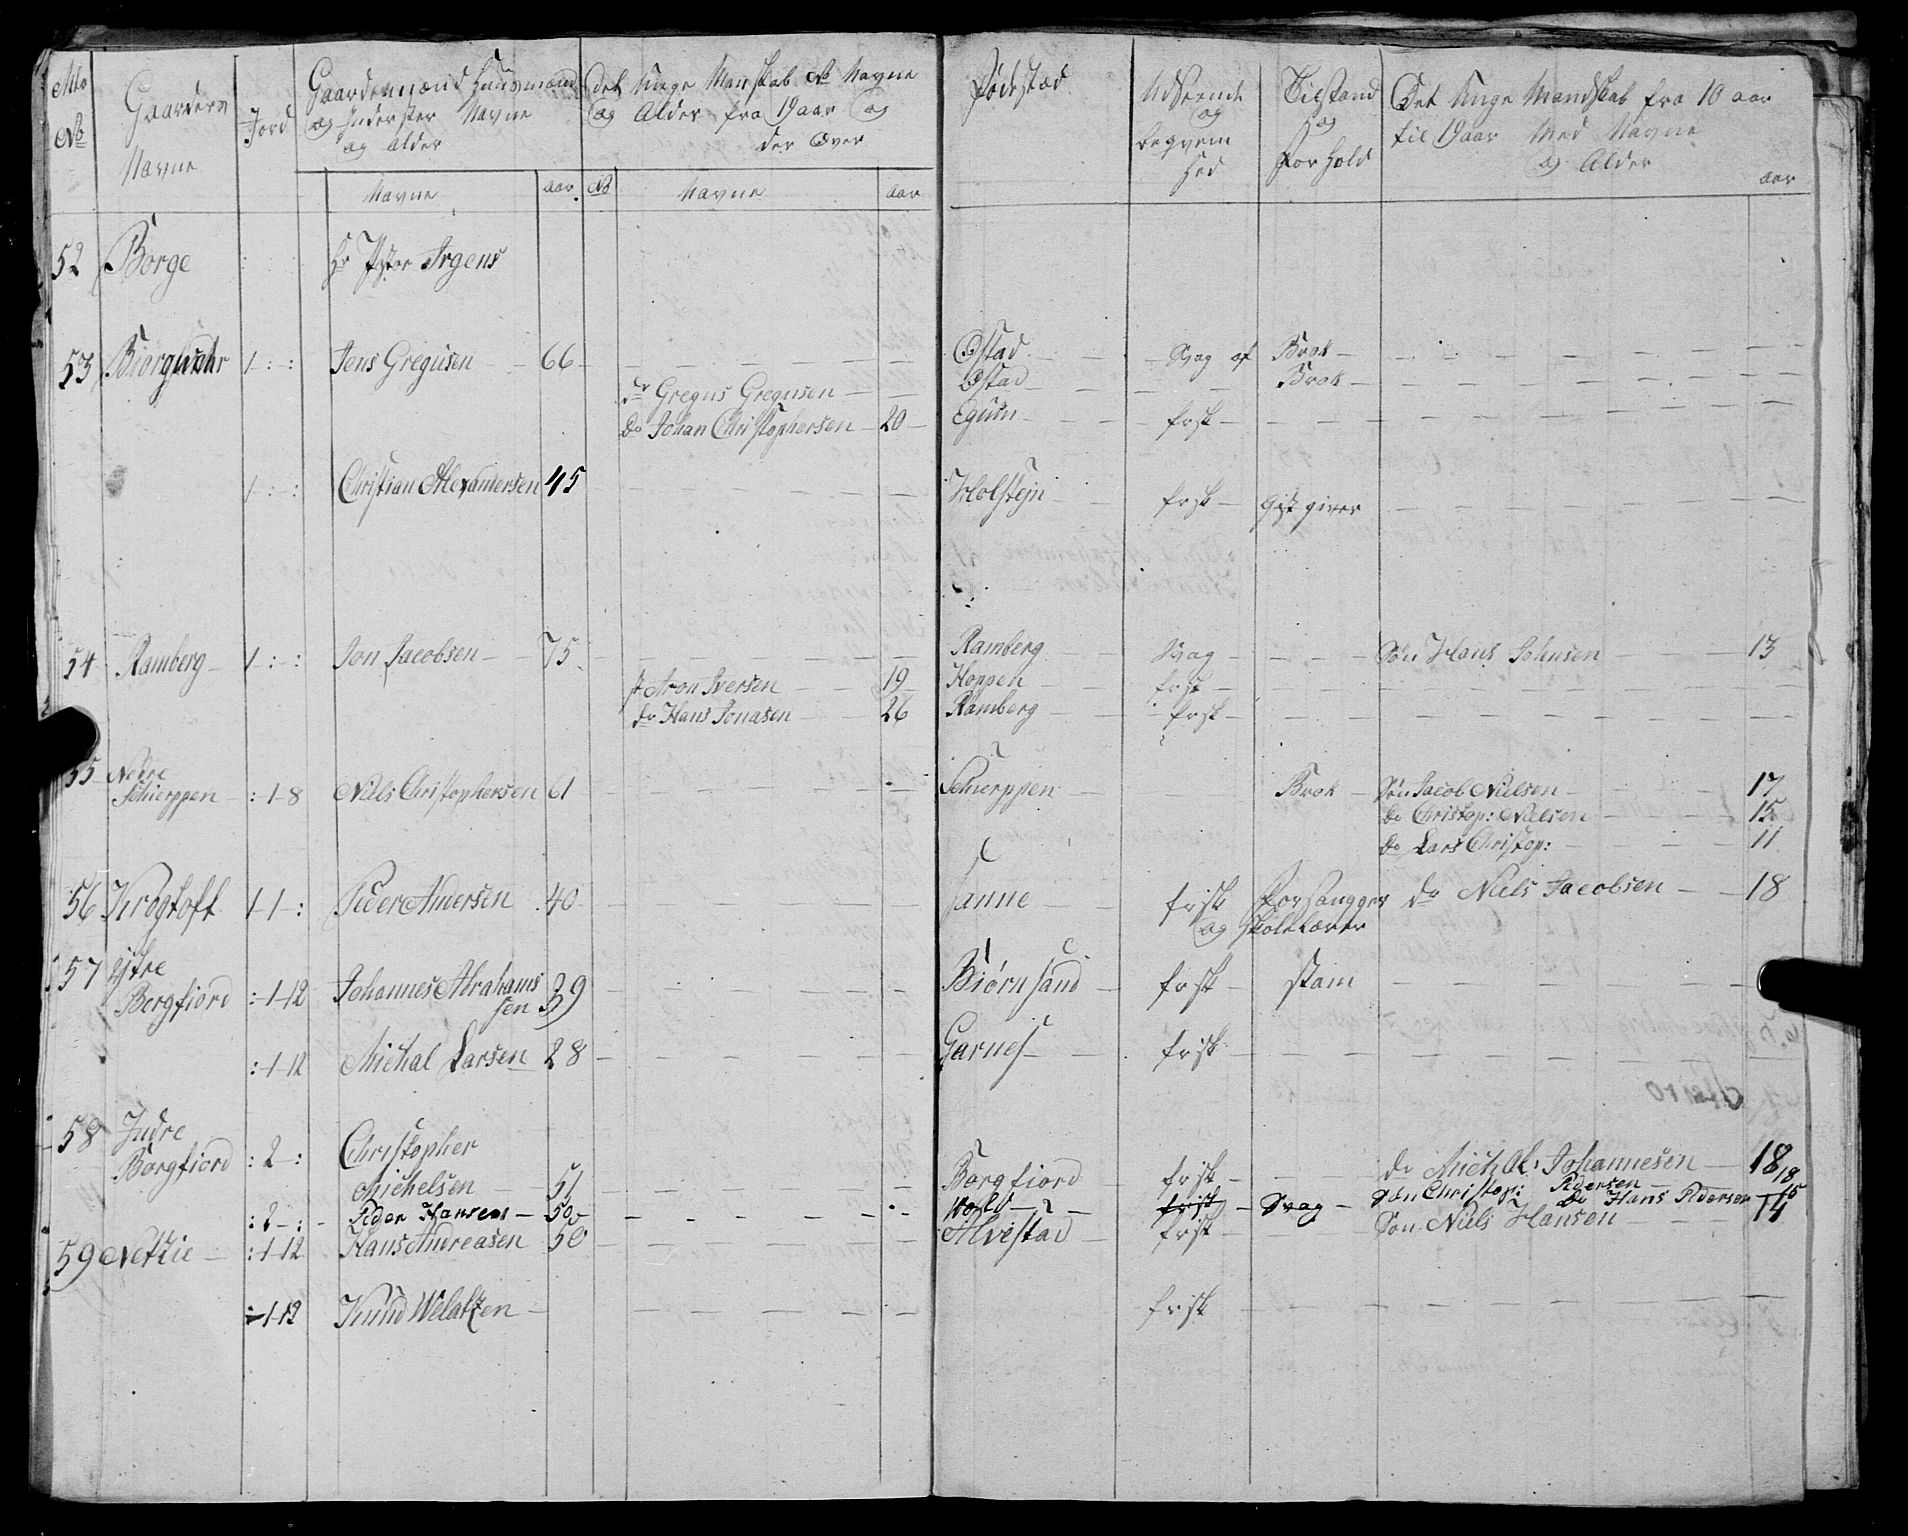 Mtr No
Gaardens Navne
Jord
Gaardemænd Huusmænd og Inderster Navne og alder
Det Unge Manskab No Navne og Alder fra 19 aar og der over
Fødestæd
Udseende og beqvem hed
Tilstand og Forhold
Det Unge Mandskab fra 10 aar til 19 aar Med Navne og Alder
Navne aar No Navne aar aar
52 Borge Hr Pastor Irgens
53 1 - : - : Jens Gregusen 66 Østad Svag af Brok
Gregus Gregusen Østad Brok
do Johan Christophersen 20 Egum frisk
1 - : - : Christian Alexandersen 45 Holstejn frisk Gjestgiver
54 Ramberg 1 - : - : Jon Jacobsen 75 Ramberg Svag Søn Hans Johnsen 13
Aron Iversen 19 Hoppen frisk
do Hans Jonasen 26 Ramberg frisk
55 Nedre
Schierppen : - 1 - 8 Niels Christophersen 61 Schierppen Brok Søn Jacob Nielsen 17
do Christop: Nielsen 15
do Lars Christop: 11
56 Krogtoft 1 - 1 - : Peder Andersen 40 Sanne frisk Forsangger do Niels Jacobsen 18
og Skolelærer
57 Ytre
Borgfiord : - 1 - 12 Johannes Abrahams
sen 39 Biørnsand frisk stam
: - 1 - 12 Michal Larsen 28 Garnes frisk
58 Indre
Borgfiord : 2 - : Christopher
Michelsen 51 Borgfiord frisk do Mich̅l: Johannesen 18
: 2 - : Peder Hansen 50 Wold frisk Svag Søn Christop: Pedersen 18
do Hans Pedersen 15
59 Netzie : - 1 - 12 Hans Andreasen 50 Alvestad frisk Søn Niels Hansen 14
: - 1 - 12 Knud Welatzen frisk